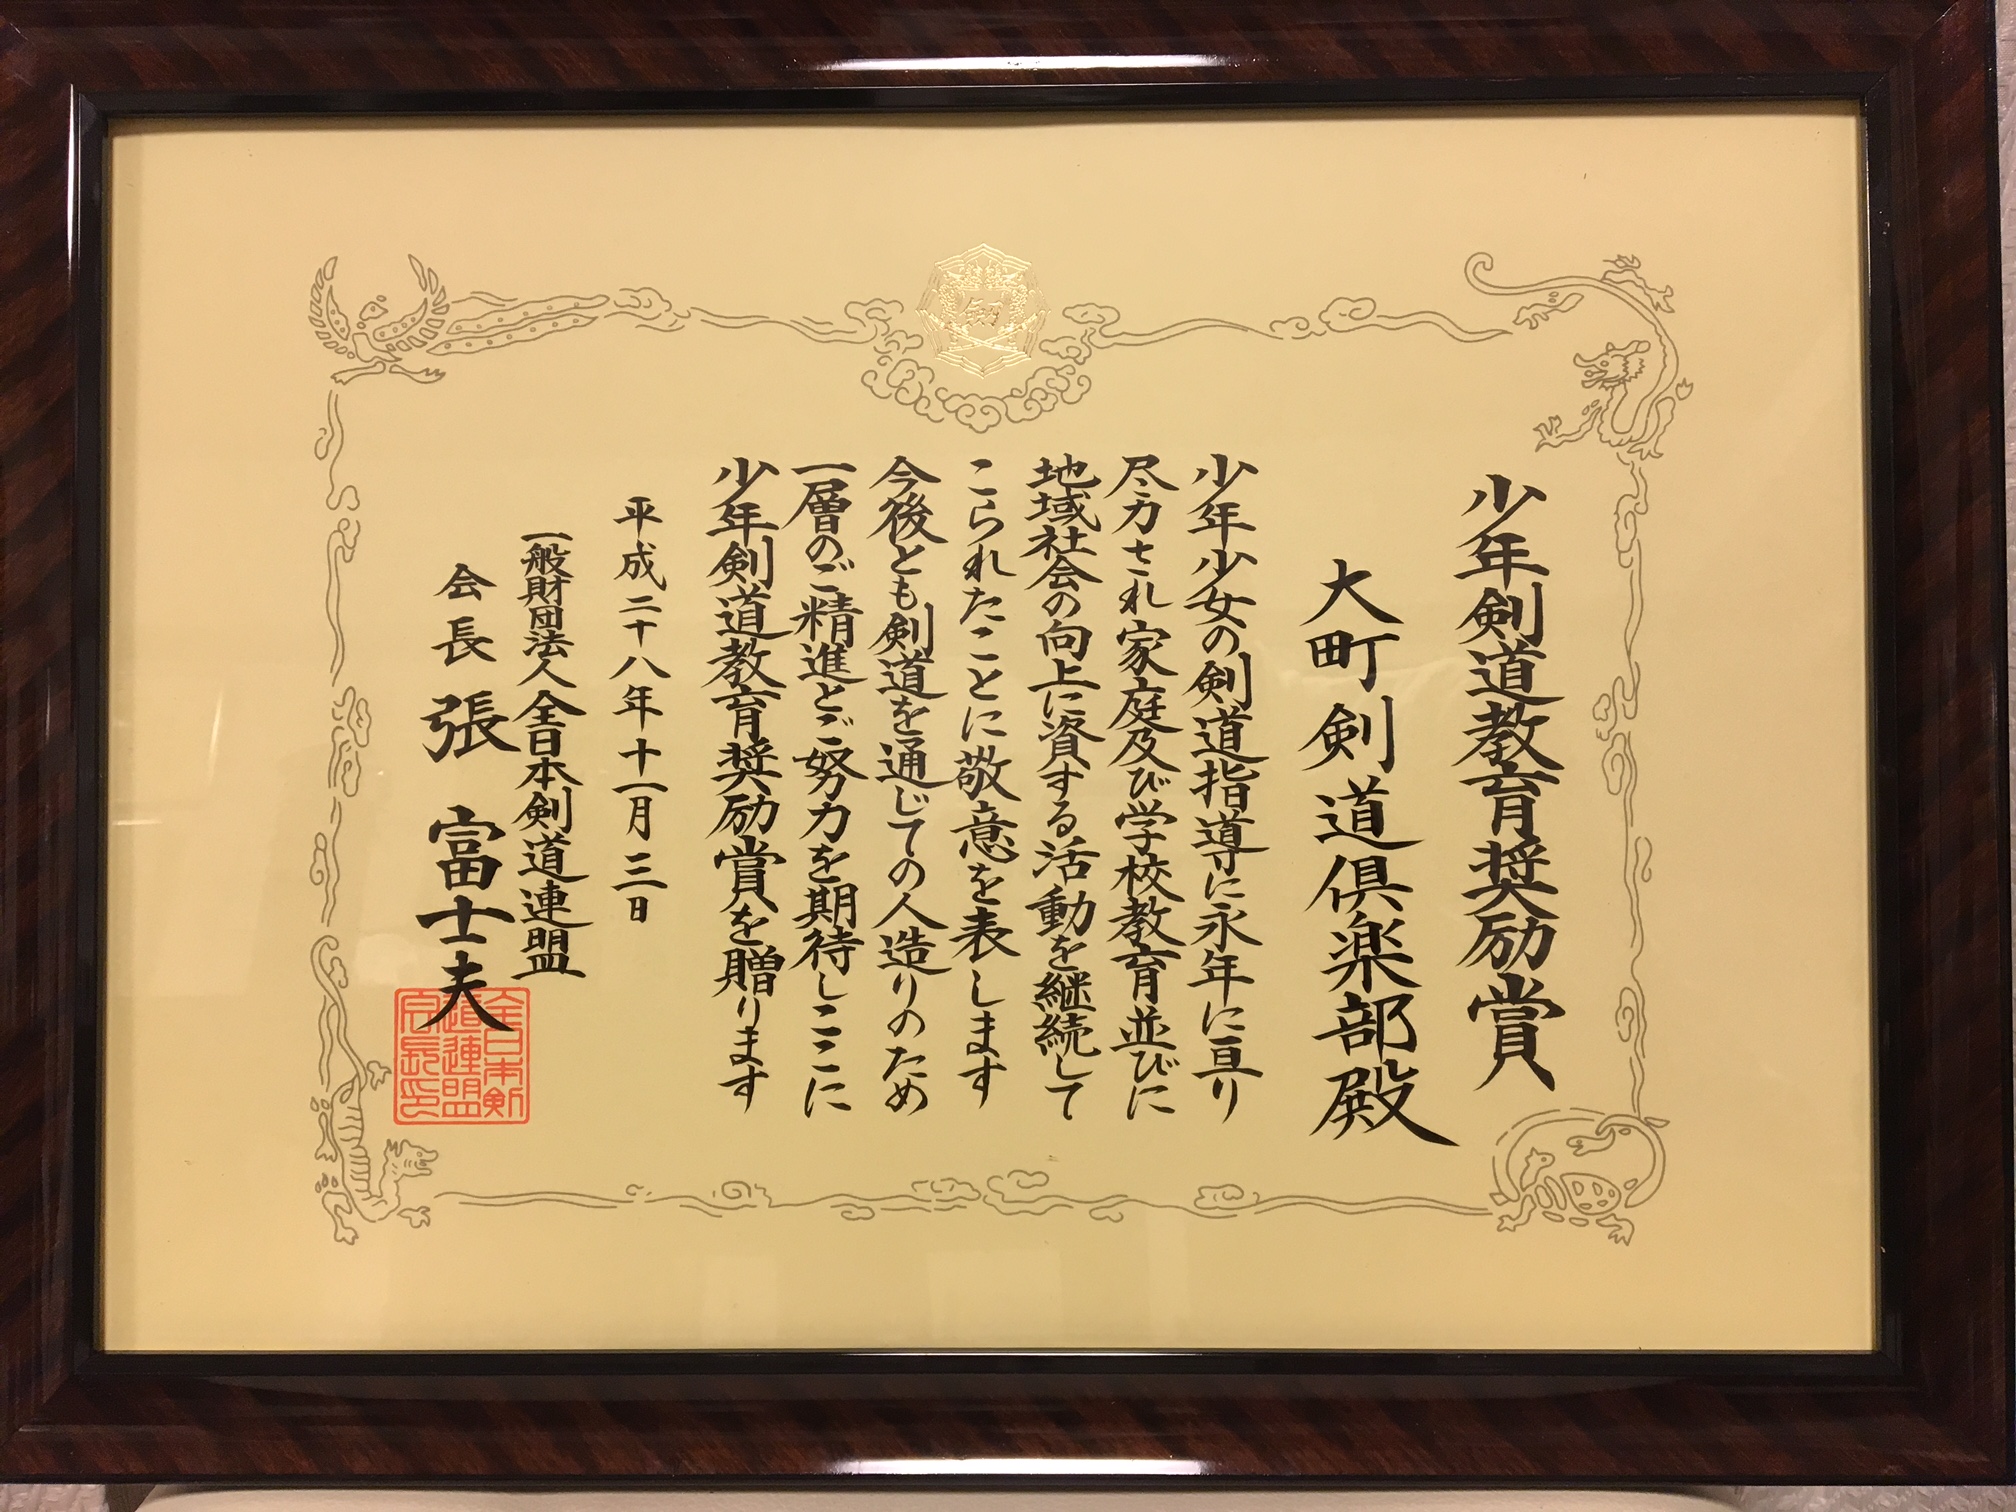 少年剣道教育奨励賞
大町剣道倶楽部殿
少年少女の剣道指導に永年に亘り
尽力され家庭及び学校教育並びに
地域社会の向上に資する活動を継続して
こられたことに敬意を表します
今後とも剣道を通じての人造りのため
一層のご精進とご努力を期待しここに
少年剣道教育奨励賞を贈ります
平成二十八年十一月三日
一般財団法人全日本剣道連盟
会長 張 富士夫
全日本剣
道連盟
会長印
剣